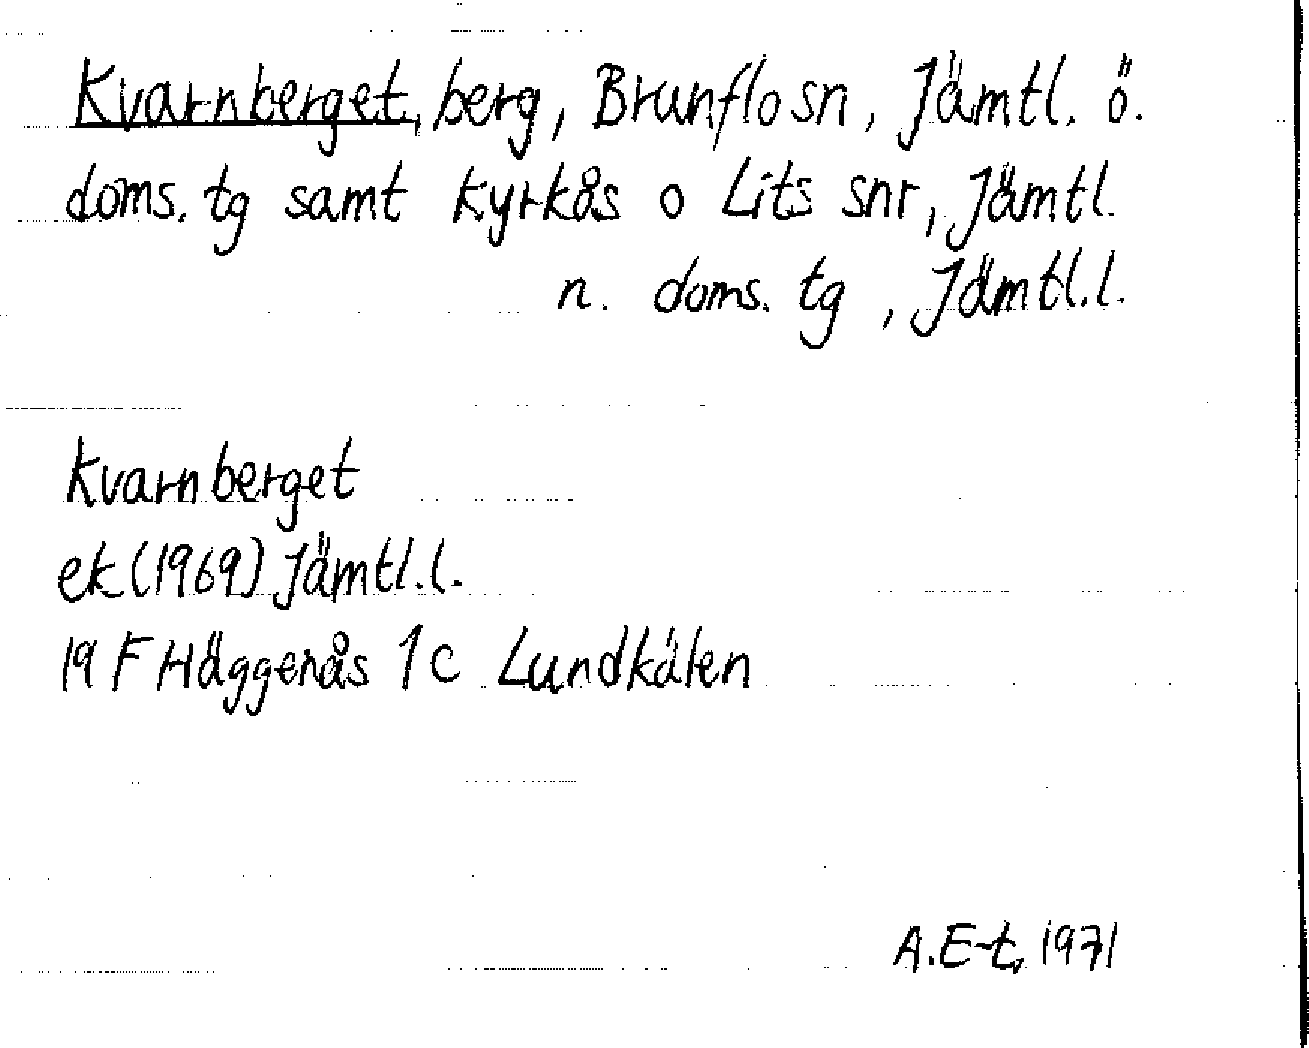 Kvarnberget, berg, Brunflo sn, Jämtl. ö.
doms. tg samt Kyrkås o Lits snr, Jämtl.
n. doms. tg, Jämtl.l.
Kvarnberget
ek (1969) Jämtl.l.
19 F Häggenås 1 c Lundkälen
A.E-t, 1971